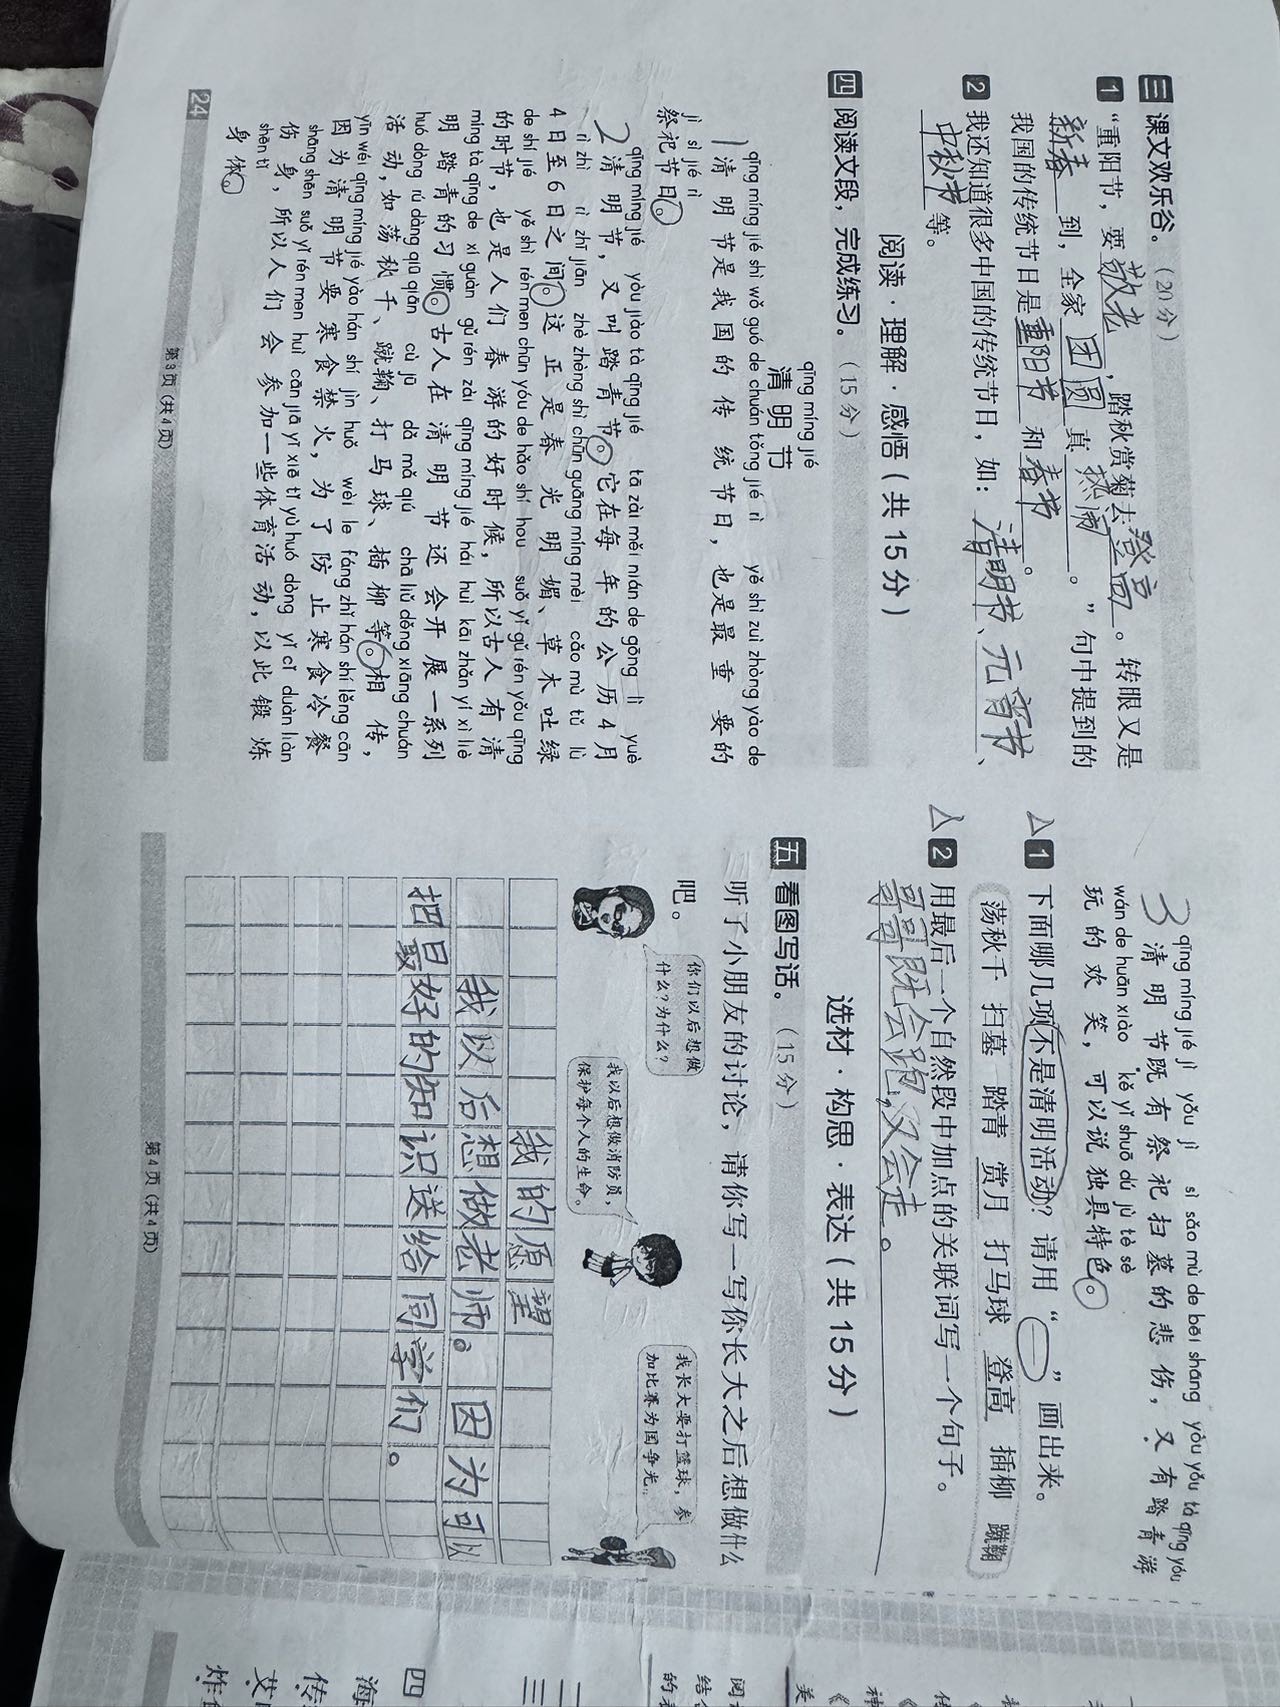 三 课文欢乐谷。（20分）
1 “重阳节，要敬老，踏秋赏菊去登高。转眼又是
新春到，全家团圆真热闹。”句中提到的
我国的传统节日是重阳节和春节。
2 我还知道很多中国的传统节日，如：清明节、元宵节、
中秋节等。
阅读·理解·感悟（共15分）
四 阅读文段，完成练习。（15分）
qīng míng jié
清明节
qīng míng jié shì wǒ guó de chuán tǒng jié rì yě shì zuì zhòng yào de
1 清明节是我国的传统节日，也是最重要的
jì sì jié rì
祭祀节日。
qīng míng jié yòu jiào tà qīng jié tā zài měi nián de gōng lì yuè
2 清明节，又叫踏青节。它在每年的公历4月
rì zhì rì zhī jiān zhè zhèng shì chūn guāng míng mèi cǎo mù tǔ lǜ
4日至6日之间。这正是春光明媚、草木吐绿
de shí jié yě shì rén men chūn yóu de hǎo shí hou suǒ yǐ gǔ rén yǒu qīng
的时节，也是人们春游的好时候，所以古人有清
míng tà qīng de xí guàn gǔ rén zài qīng míng jié hái huì kāi zhǎn yí xì liè
明踏青的习惯。古人在清明节还会开展一系列
huó dòng rú dàng qiū qiān cù jū dǎ mǎ qiú chā liǔ děng xiāng chuán
活动，如荡秋千、蹴鞠、打马球、插柳等。相传，
yīn wèi qīng míng jié yào hán shí jìn huǒ wèi le fáng zhǐ hán shí lěng cān
因为清明节要寒食禁火，为了防止寒食冷餐
shāng shēn suǒ yǐ rén men huì cān jiā yì xiē tǐ yù huó dòng yǐ cǐ duàn liàn
伤身，所以人们会参加一些体育活动，以此锻炼
shēn tǐ
身体。
24
第3页（共4页）
qīng míng jié jì yǒu jì sì sǎo mù de bēi shāng yòu yǒu tà qīng yóu
3 清明节既有祭祀扫墓的悲伤，又有踏青游
wán de huān xiào kě yǐ shuō dú jù tè sè
玩的欢笑，可以说独具特色。
1 下面哪几项不是清明活动？请用“——”画出来。
荡秋千 扫墓 踏青 赏月 打马球 登高 插柳 蹴鞠
2 用最后一个自然段中加点的关联词写一个句子。
哥哥既会跑，又会走。
选材·构思·表达（共15分）
五 看图写话。（15分）
听了小朋友的讨论，请你写一写你长大之后想做什么
吧。
你们以后想做
什么？为什么？
我以后想做消防员，
保护每个人的生命。
我长大要打篮球，参
加比赛为国争光。
我的愿望
我以后想做老师。因为可以
把最好的知识送给同学们。
第4页（共4页）